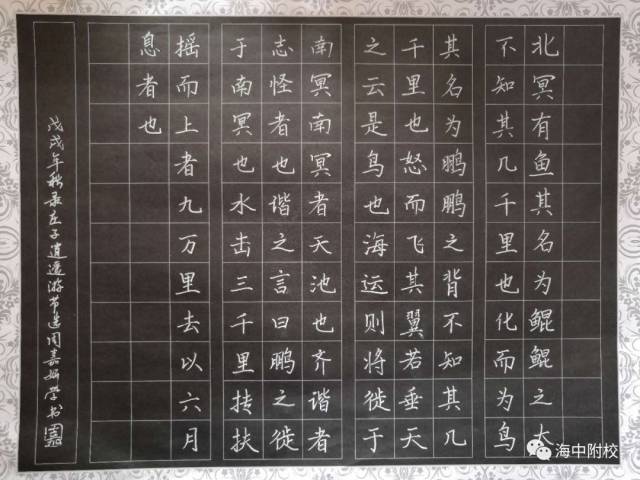 北冥有鱼其名为鲲鲲之大
不知其几千里也化而为鸟
其名为鹏鹏之背不知其几
千里也怒而飞其翼若垂天
之云是鸟也海运则将徙于
南冥南冥者天池也齐谐者
志怪者也谐之言曰鹏之徙
于南冥也水击三千里抟扶
摇而上者九万里去以六月
息者也
戊戌年秋录庄子逍遥游节选周嘉妍学书
海中附校